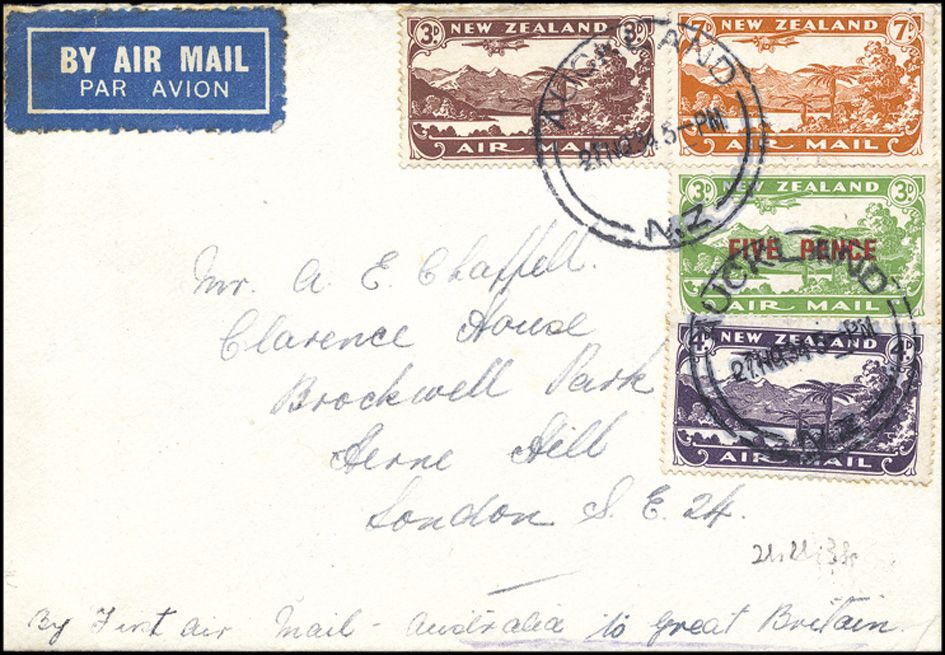 BY AIR MAIL
PAR AVION
3D NEW ZEALAND 3D
AIR MAIL
7D NEW ZEALAND 7D
AIR MAIL
AUCKLAND
27 NO 34 5-PM
N.Z
3D NEW ZEALAND 3D
FIVE PENCE
AIR MAIL
4D NEW ZEALAND 4D
AIR MAIL
AUCKLAND
27 NO 34 5-PM
N.Z
Mr. A. E. Chaffell.
Clarence House
Brockwell Park
Herne Hill
London S. E. 24.
By First Air Mail - Australia to Great Britain.